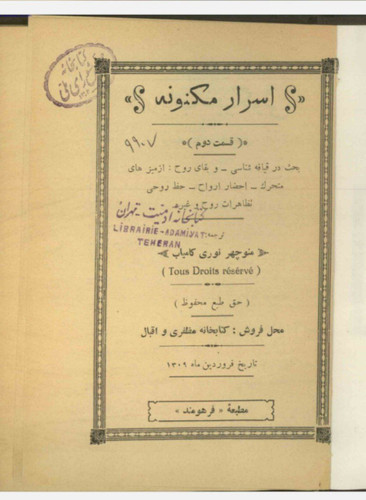 « اسرار مکنونه »
۹۹۰۷
( قسمت دوم )
بحث در قیافه شناسی ــ و بقای روح : از میز های
متحرک ــ احضار ارواح ــ خط روحی
تظاهرات روح و غیره
کتابخانه ادمیت تهران
ترجمه:
LIBRAIRIE-ADAMIYAT
TEHERAN
منوچهر نوری کامیاب
( Tous Droits résérvé )
( حق طبع محفوظ )
محل فروش : کتابخانه مظفری و اقبال
تاریخ فروردین ماه ۱۳۰۹
مطبعهٔ « فرهومند »